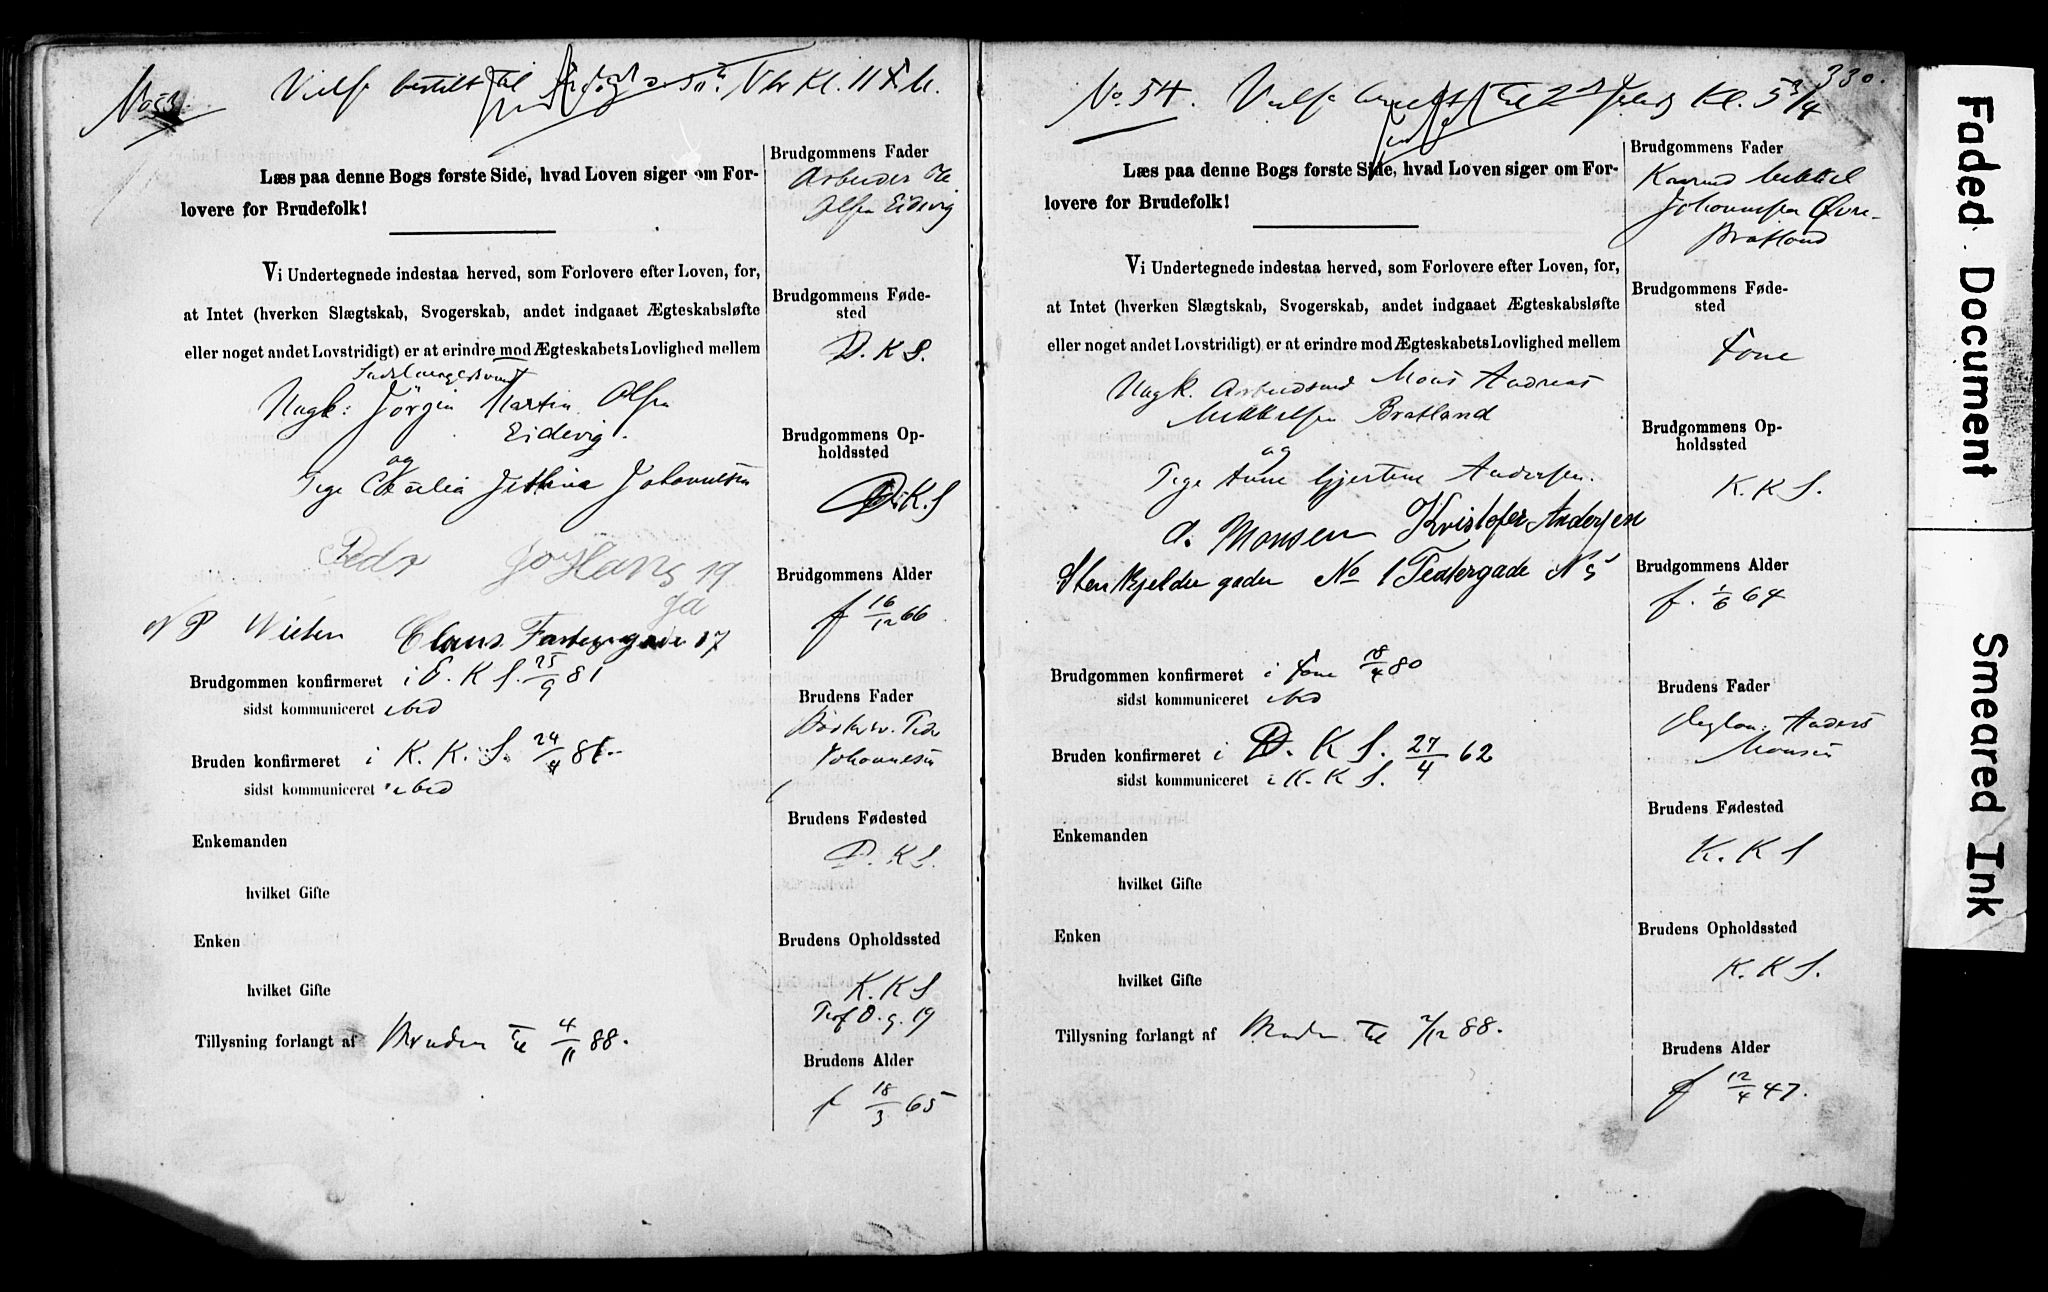 No 53.
Vielse bestilt til Kl. 11 F.
Læs paa denne Bogs første Side, hvad Loven siger om For-
lovere for Brudefolk!
Vi Undertegnede indestaa herved, som Forlovere efter Loven, for,
at Intet (hverken Slægtskab, Svogerskab, andet indgaaet Ægteskabsløfte
eller noget andet Lovstridigt) er at erindre mod Ægteskabets Lovlighed mellem
Ungk: Jörgen Martin Olsen
Eidsvig.
og
Pige Jethine Johannesen
Peder Johans 19
N P Claus 17
Brudgommen konfirmeret i E. K S. 25/9 81
sidst kommuniceret ibid
Bruden konfirmeret i K. K. S. 24/4 81
sidst kommuniceret ibid
Enkemanden
hvilket Gifte
Enken
hvilket Gifte
Tillysning forlangt af Bruden til 4/11 88.
Brudgommens Fader
Arbeider Ole
Olsen Eidsvig
Brudgommens Føde-
sted
D. K S.
Brudgommens Op-
holdssted
D. K. S
Brudgommens Alder
f 16/12 66
Brudens Fader
Peder
Johannesen
Brudens Fødested
D. K S.
Brudens Opholdssted
K. K S
g. 19
Brudens Alder
f 18/3 65
330.
No 54. Vielse til 2 Juledag Kl. 5 3/4
Læs paa denne Bogs første Side, hvad Loven siger om For-
lovere for Brudefolk!
Vi Undertegnede indestaa herved, som Forlovere efter Loven, for,
at Intet (hverken Slægtskab, Svogerskab, andet indgaaet Ægteskabsløfte
eller noget andet Lovstridigt) er at erindre mod Ægteskabets Lovlighed mellem
Ungk. Arbeidsmd Mons Andreas
Mikkelsen Bratland
og
Pige Anne Gjertine Andersen.
A. Monsen Kristofer Andersen
Stenkjelder gaden No 1 No 5
Brudgommen konfirmeret i Fane 18/4 80
sidst kommuniceret ibid
Bruden konfirmeret i D. K S. 27/4 62
sidst kommuniceret i K. K S.
Enkemanden
hvilket Gifte
Enken
hvilket Gifte
Tillysning forlangt af Bruden til 2/12 88.
Brudgommens Fader
Mikkel
Johannesen Øvre-
Bratland
Brudgommens Føde-
sted
Fane
Brudgommens Op-
holdssted
K. K S.
Brudgommens Alder
f. 1/6 64
Brudens Fader
Anders
Monsen
Brudens Fødested
K. K S
Brudens Opholdssted
K. K S.
Brudens Alder
f 12/4 47.
Faded Document
Smeared Ink